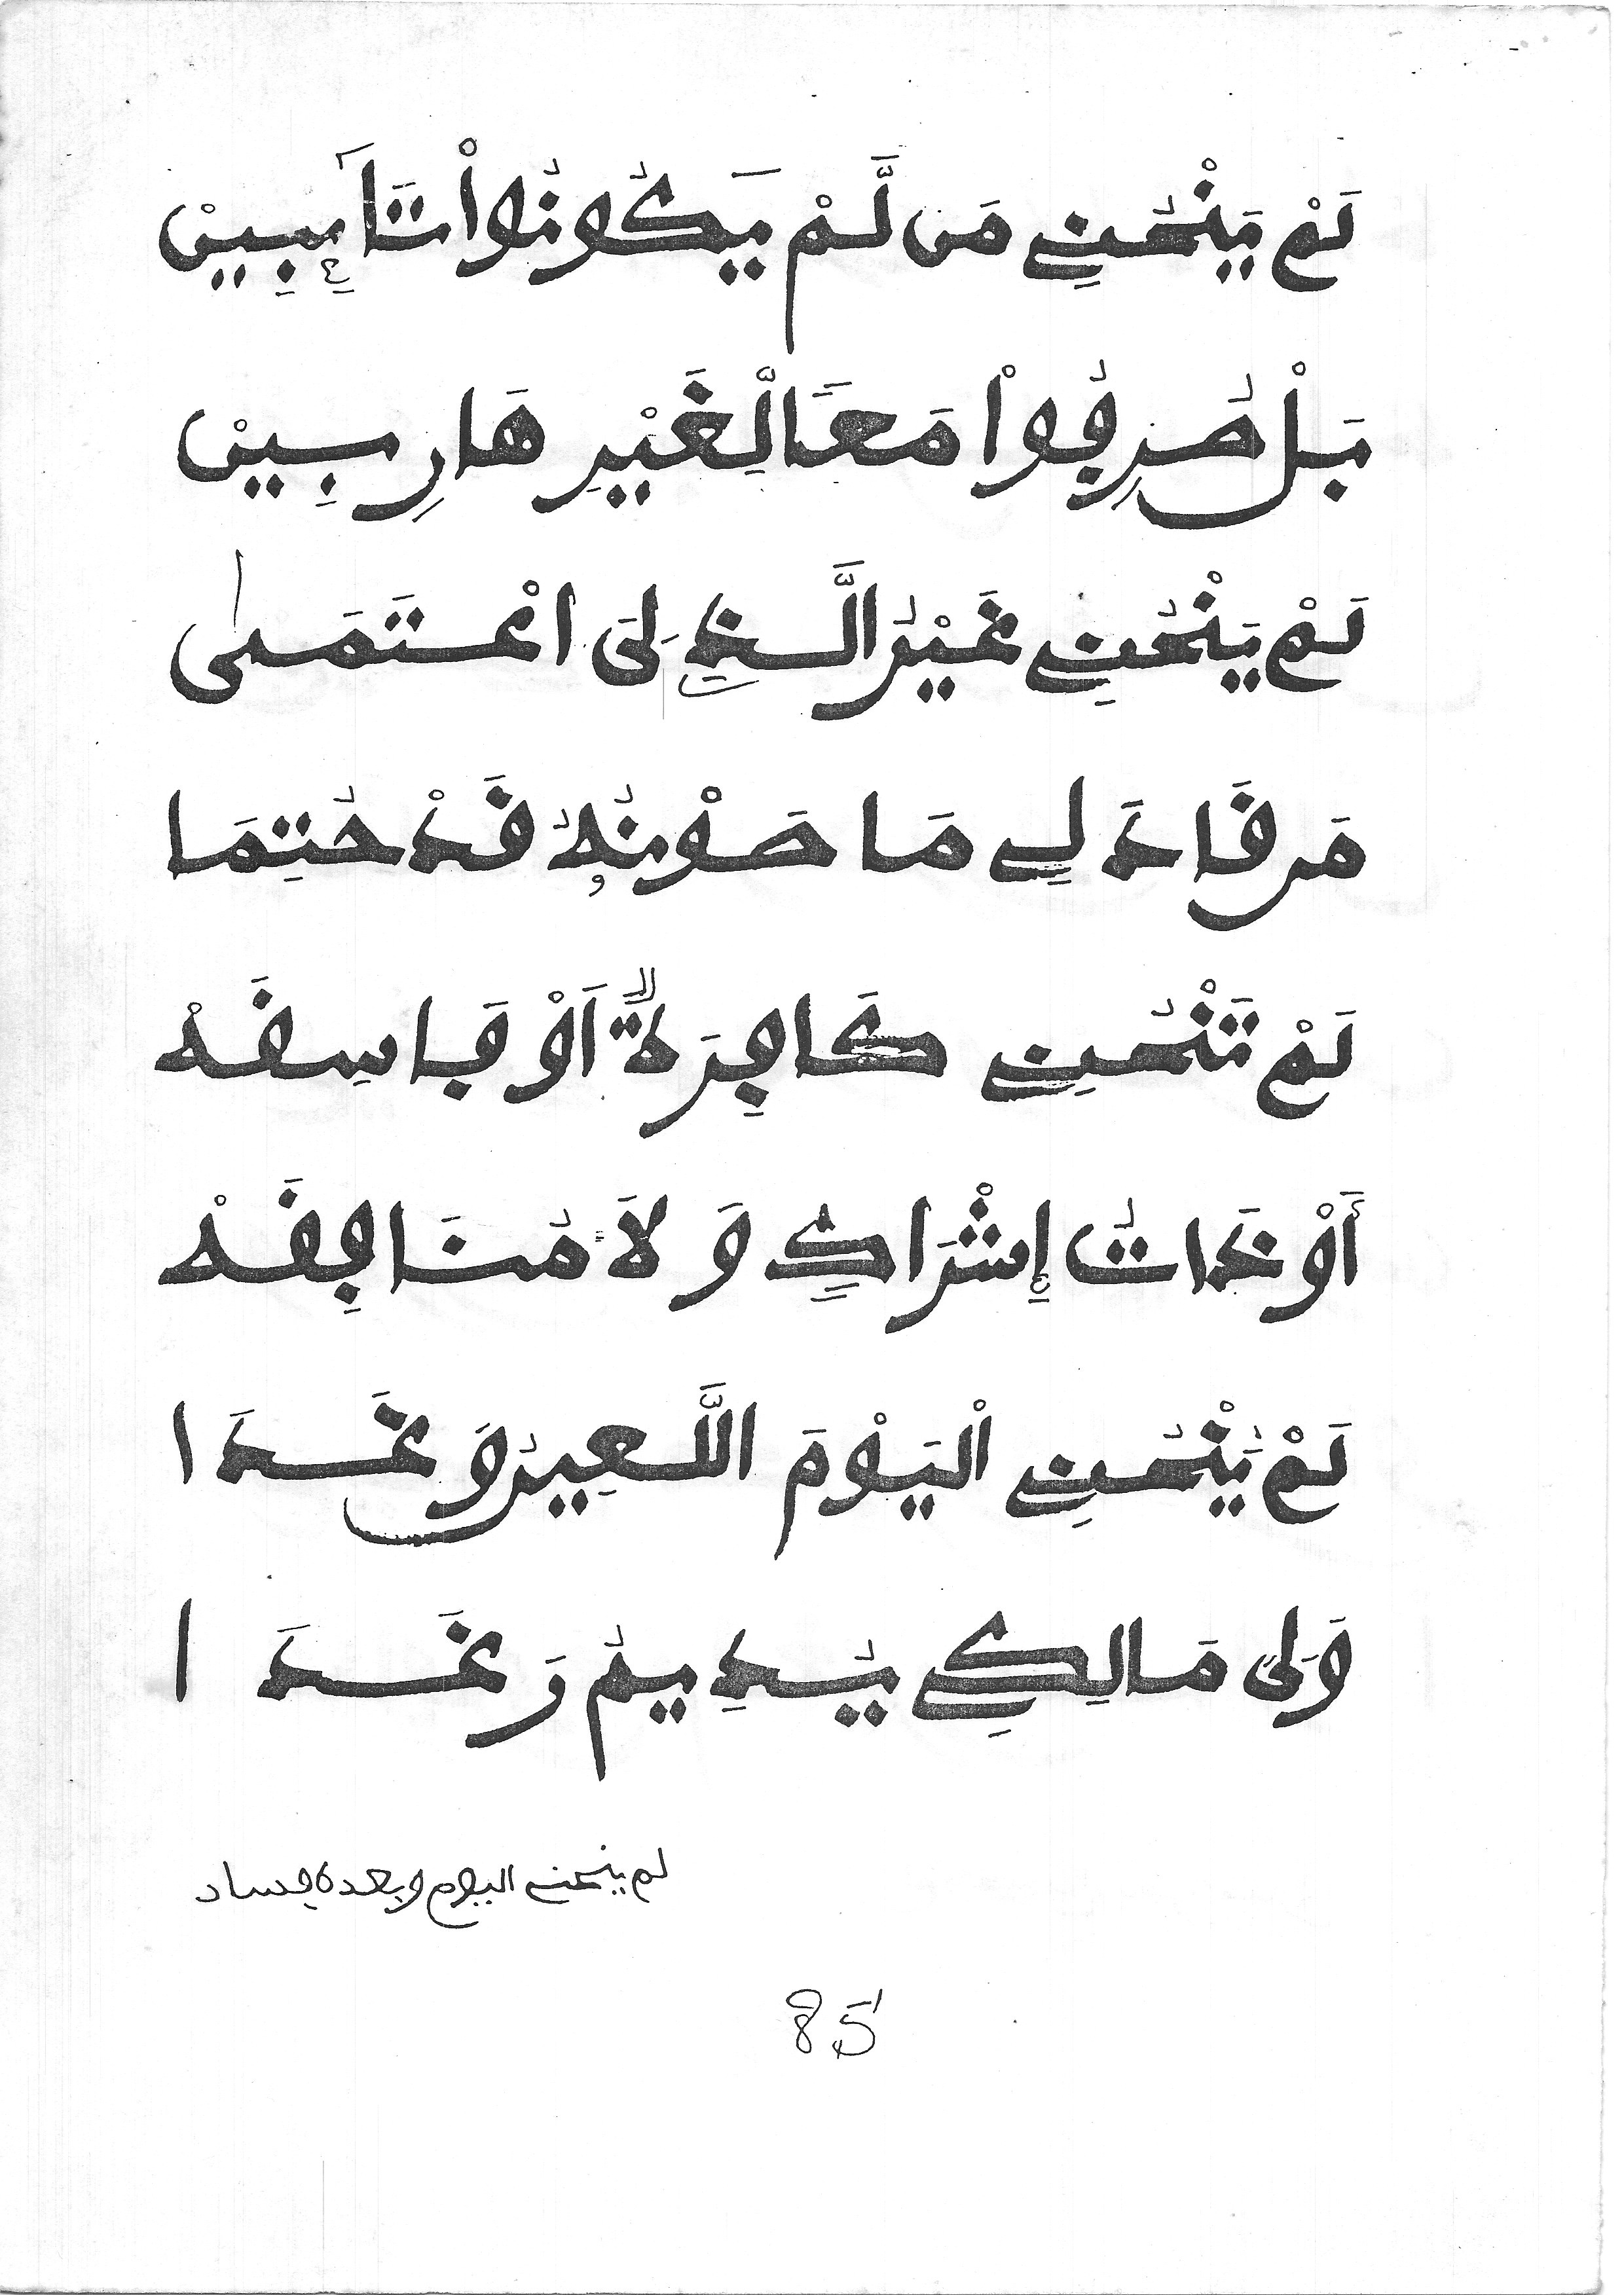 لَمْ يَنْحُنِي مَن لَّمْ يَكُونُواْ تَائِبِينْ
بَلْ صُرِفُواْ مَعًا لِّغَيْرِ هَارِبِينْ
لَمْ يَنْحُنِي غَيْرُ الَّذِي لِيَ انْتَمَى
مَن قَادَ لِي مَا صَوْنُهُ قَدْ حُتِمَا
لَمْ تَنْحُنِي كَافِرَةٌ أَوْ فَاسِقَهْ
أَوْ ذَاتُ إِشْرَاكٍ وَلَا مُنَافِقَهْ
لَمْ يَنْحُنِي الْيَوْمَ اللَّعِينُ وَغَدَا
وَلِيَ مَالِكِي يُدِيمُ رَغَدَا
لم ينحنى اليوم وبعده فساد
85